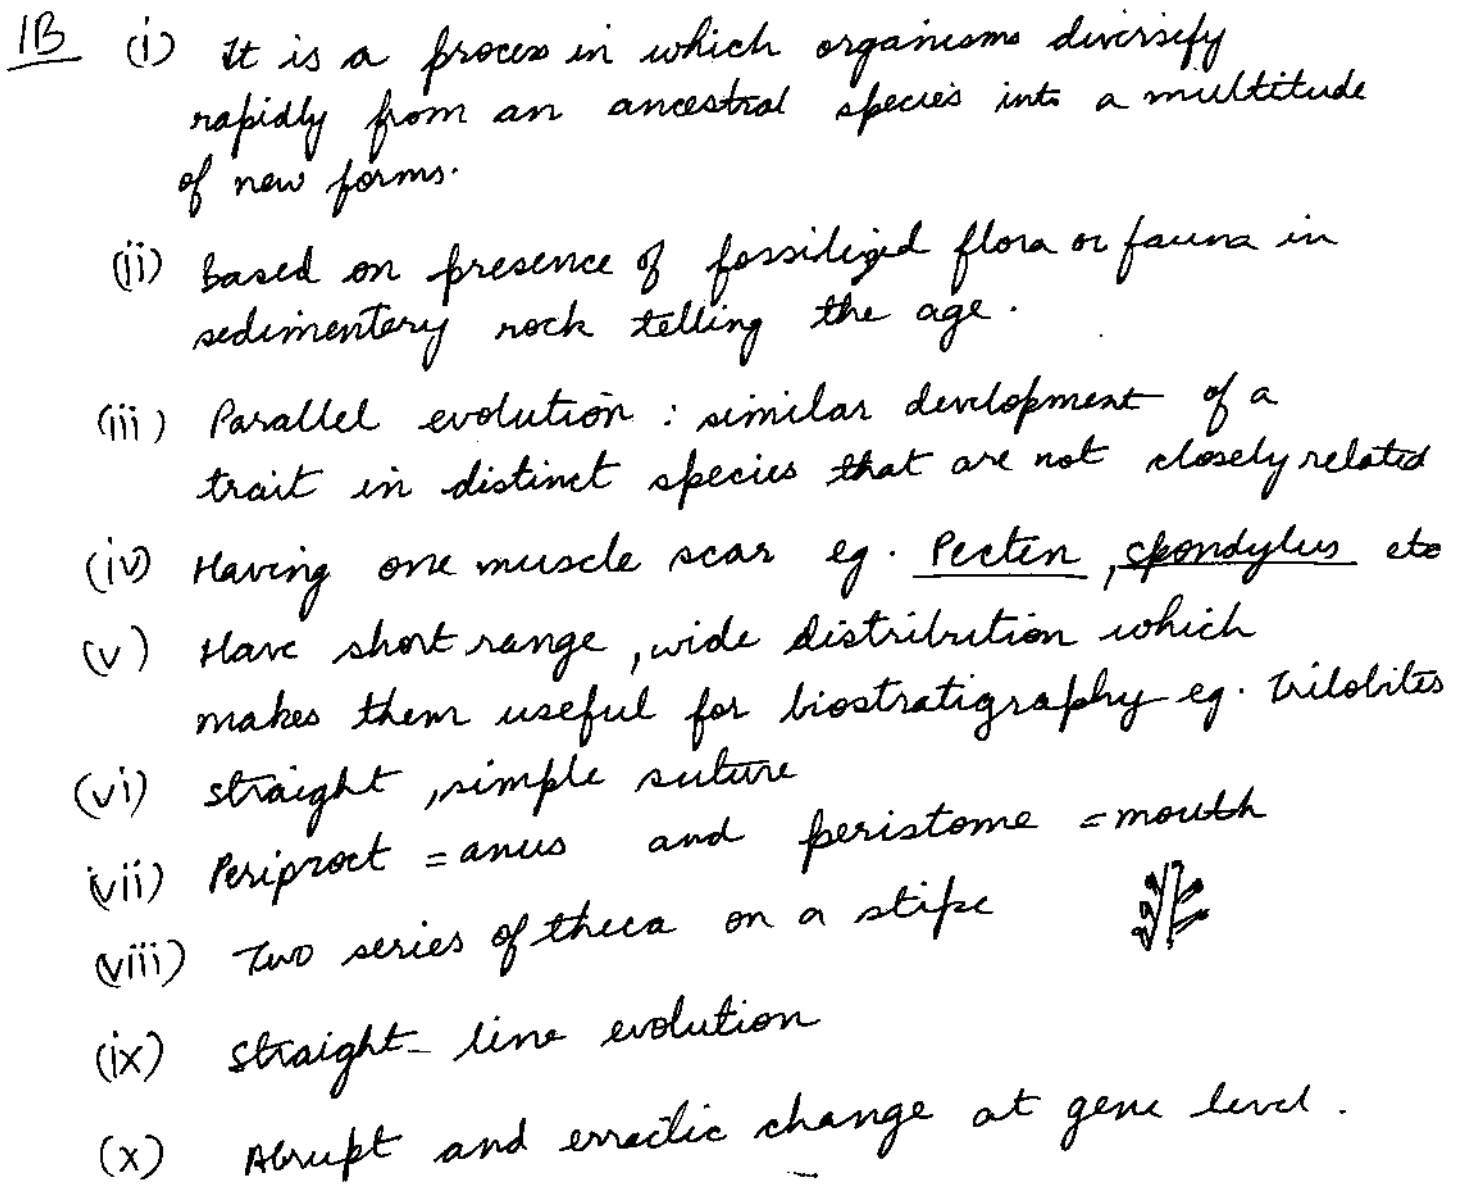 1B (i) It is a process in which organisms diversify
rapidly from an ancestral species into a multitude
of new forms.
(ii) Based on presence of fossilized flora or fauna in
sedimentary rock telling the age.
(iii) Parallel evolution : similar development of a
trait in distinct species that are not closely related
(iv) Having one muscle scar eg. Pecten, Spondylus etc
(v) Have short range, wide distribution which
makes them useful for biostratigraphy eg. Trilobites
(vi) straight, simple suture
(vii) Periproct = anus and peristome = mouth
(viii) Two series of theca on a stipe
(ix) Straight-line evolution
(x) Abrupt and erratic change at gene level.